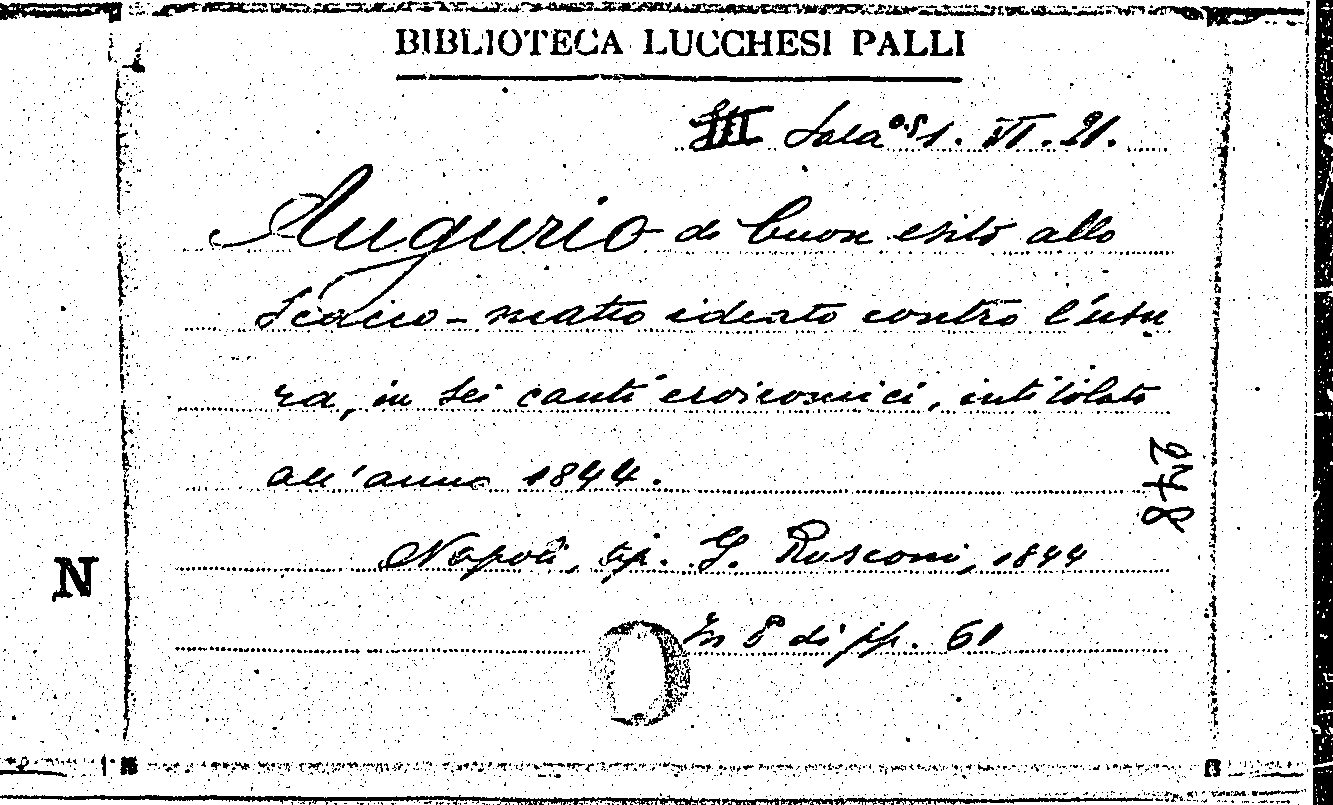 BIBLIOTECA LUCCHESI PALLI
III Sala 1. VI. 21.
Augurio di buon esito allo
Scacco-matto ideato contro l'usu
ra, in sei canti eroicomici, intitolato
all'anno 1844.
Napoli, tip. G. Rusconi, 1844
In 8° di pp. 61
N